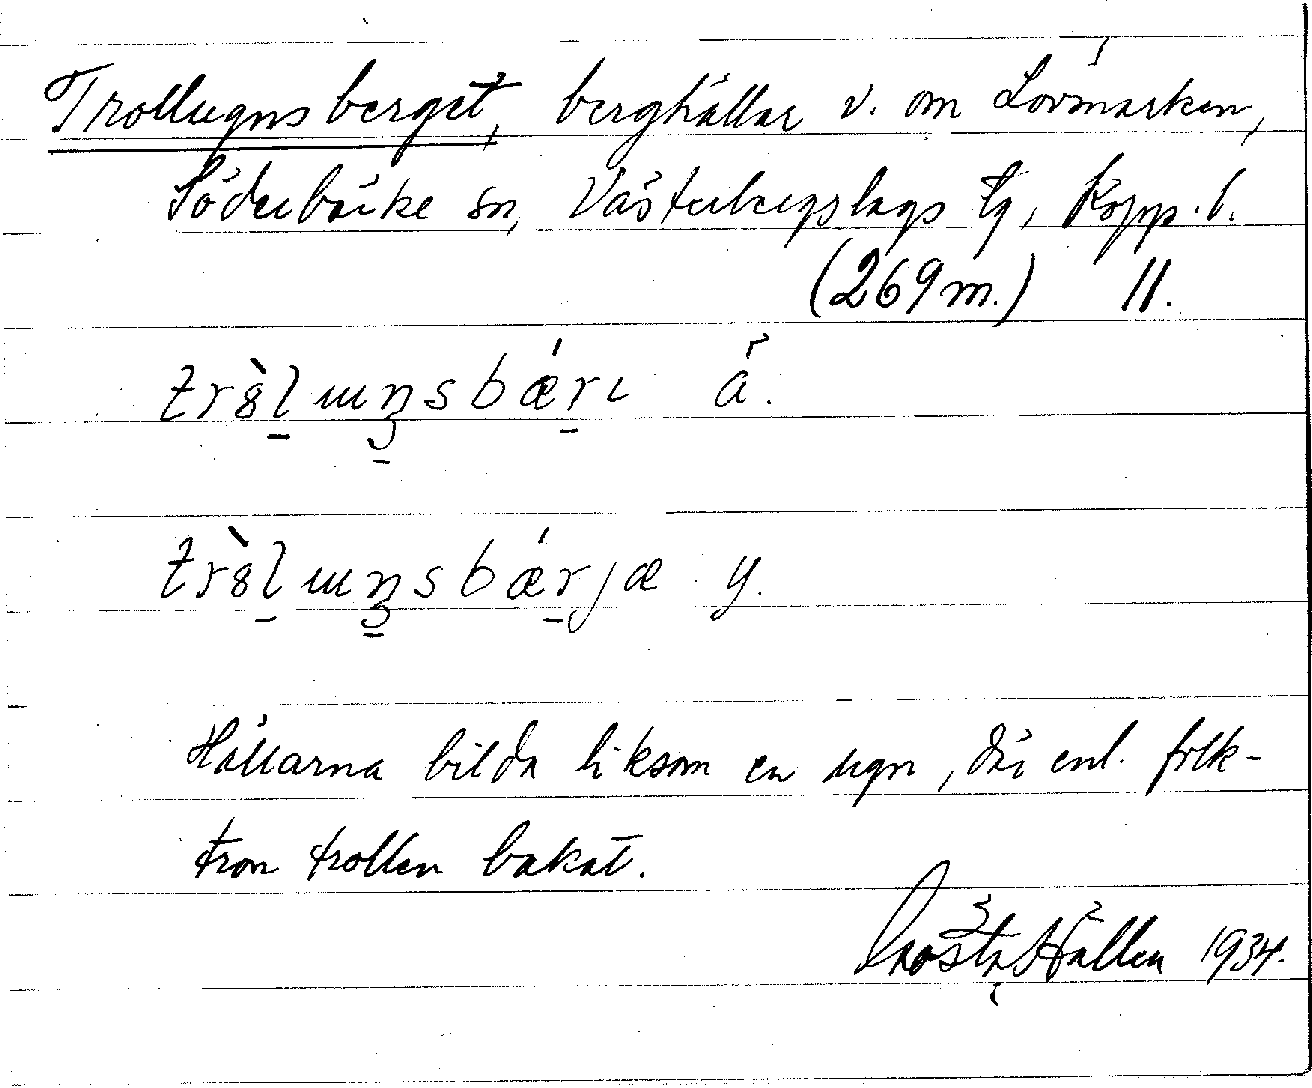 Trollugnsberget, berghällar v. om Lövmarken,
Söderbärke sn, Västerbergslags tg, Kopp. l.
(269 m.) 11.
å.
y.
Hällarna bilda liksom en ugn, där enl. folk-
tron trollen bakat.
Gösta Hållen 1934.